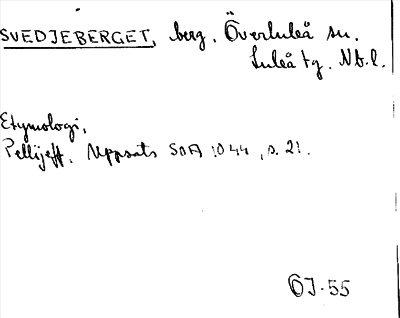 SVEDJEBERGET, berg. Överluleå sn.
Luleå tg. Nb.l.
Etymologi,
Pellijeff, Uppsats SOA 1044, s. 21.
OJ-55